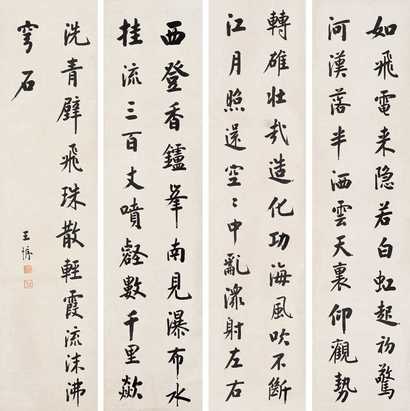 如飛電来隐若白虹起初驚
河漢落半洒雲天裏仰觀勢
轉雄壮哉造化功海風吹不斷
江月照還空〻中亂潈射左右
西登香鑪峯南見瀑布水
挂流三百丈噴壑數千里欻
洗青壁飛珠散輕霞流沫沸
穹石
王